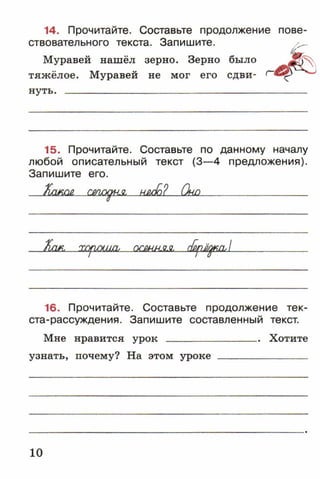 14. Прочитайте. Составьте продолжение пове-
ствовательного текста. Запишите.
Муравей нашёл зерно. Зерно было
тяжёлое. Муравей не мог его сдви-
нуть.
15. Прочитайте. Составьте по данному началу
любой описательный текст (3—4 предложения).
Запишите его.
Какое сегодня небо? Оно
Как хороша осенняя берёзка!
16. Прочитайте. Составьте продолжение тек-
ста-рассуждения. Запишите составленный текст.
Мне нравится урок . Хотите
узнать, почему? На этом уроке
.
10